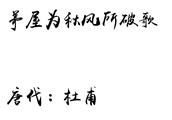 茅屋为秋风所破歌
唐代：杜甫